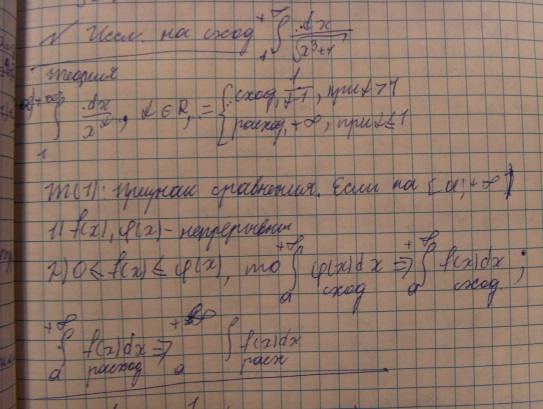 √ Иссл. на сход ∫₁^{+∞} dx/√(x³+1)
теория
∫₁^{+∞} dx/x^α, α ∈ R, = { сход, 1/(α-1), при α>1
расход, +∞, при α≤1
Т(1): Признак сравнения. Если на [a; +∞)
1) f(x), φ(x) - непрерывны
2) 0 ≤ f(x) ≤ φ(x), то ∫ₐ^{+∞} φ(x)dx сход ⇒ ∫ₐ^{+∞} f(x)dx сход. ;
∫ₐ^{+∞} f(x)dx расход ⇒ ₐ^{+∞} ∫ f(x)dx расх